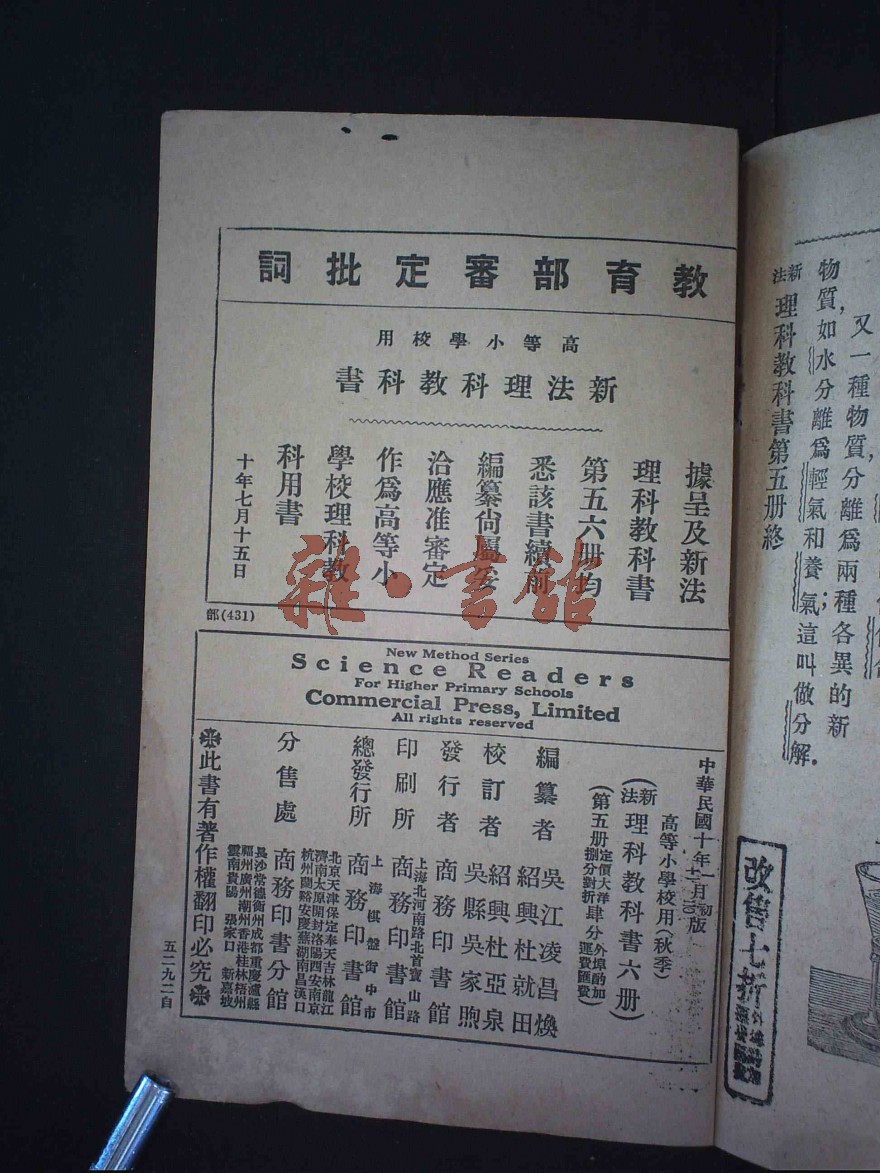 又一種物質,分離爲兩種各異的新
物質,如水分離爲輕氣和養氣;這叫做分解.
新法理科教科書第五册終
教育部審定批詞
高等小學校用
新法理科教科書
據呈及新法
理科教科書
第五六册均
悉該書續前
編纂尙屬妥
洽應准審定
作爲高等小
學校理科教
科用書
十年七月十五日
部(431)
雜·書館
New Method Series
Science Readers
For Higher Primary Schools
Commercial Press, Limited
All rights reserved
中華民國十年
高等小學校用(秋季)
(新法理科教科書六册)
(第五册定價大洋肆分外埠酌加
捌分對折運費匯費)
編纂者
吳江凌昌煥
紹興杜就田
校訂者
紹興杜亞泉
吳縣吳家煦
發行者
商務印書館
印刷所
上海北河南路北首寶山路
商務印書館
總發行所
上海棋盤街中市
商務印書館
分售處
北京天津保定奉天吉林龍江
濟南太原開封洛陽西安南京
杭州蘭谿安慶蕪湖南昌漢口
商務印書分館
長沙常德衡州成都重慶瀘縣
福州廣州潮州香港桂林梧州
雲南貴陽 張家口 新嘉坡
此書有著作權翻印必究
五二九二自
改售七折